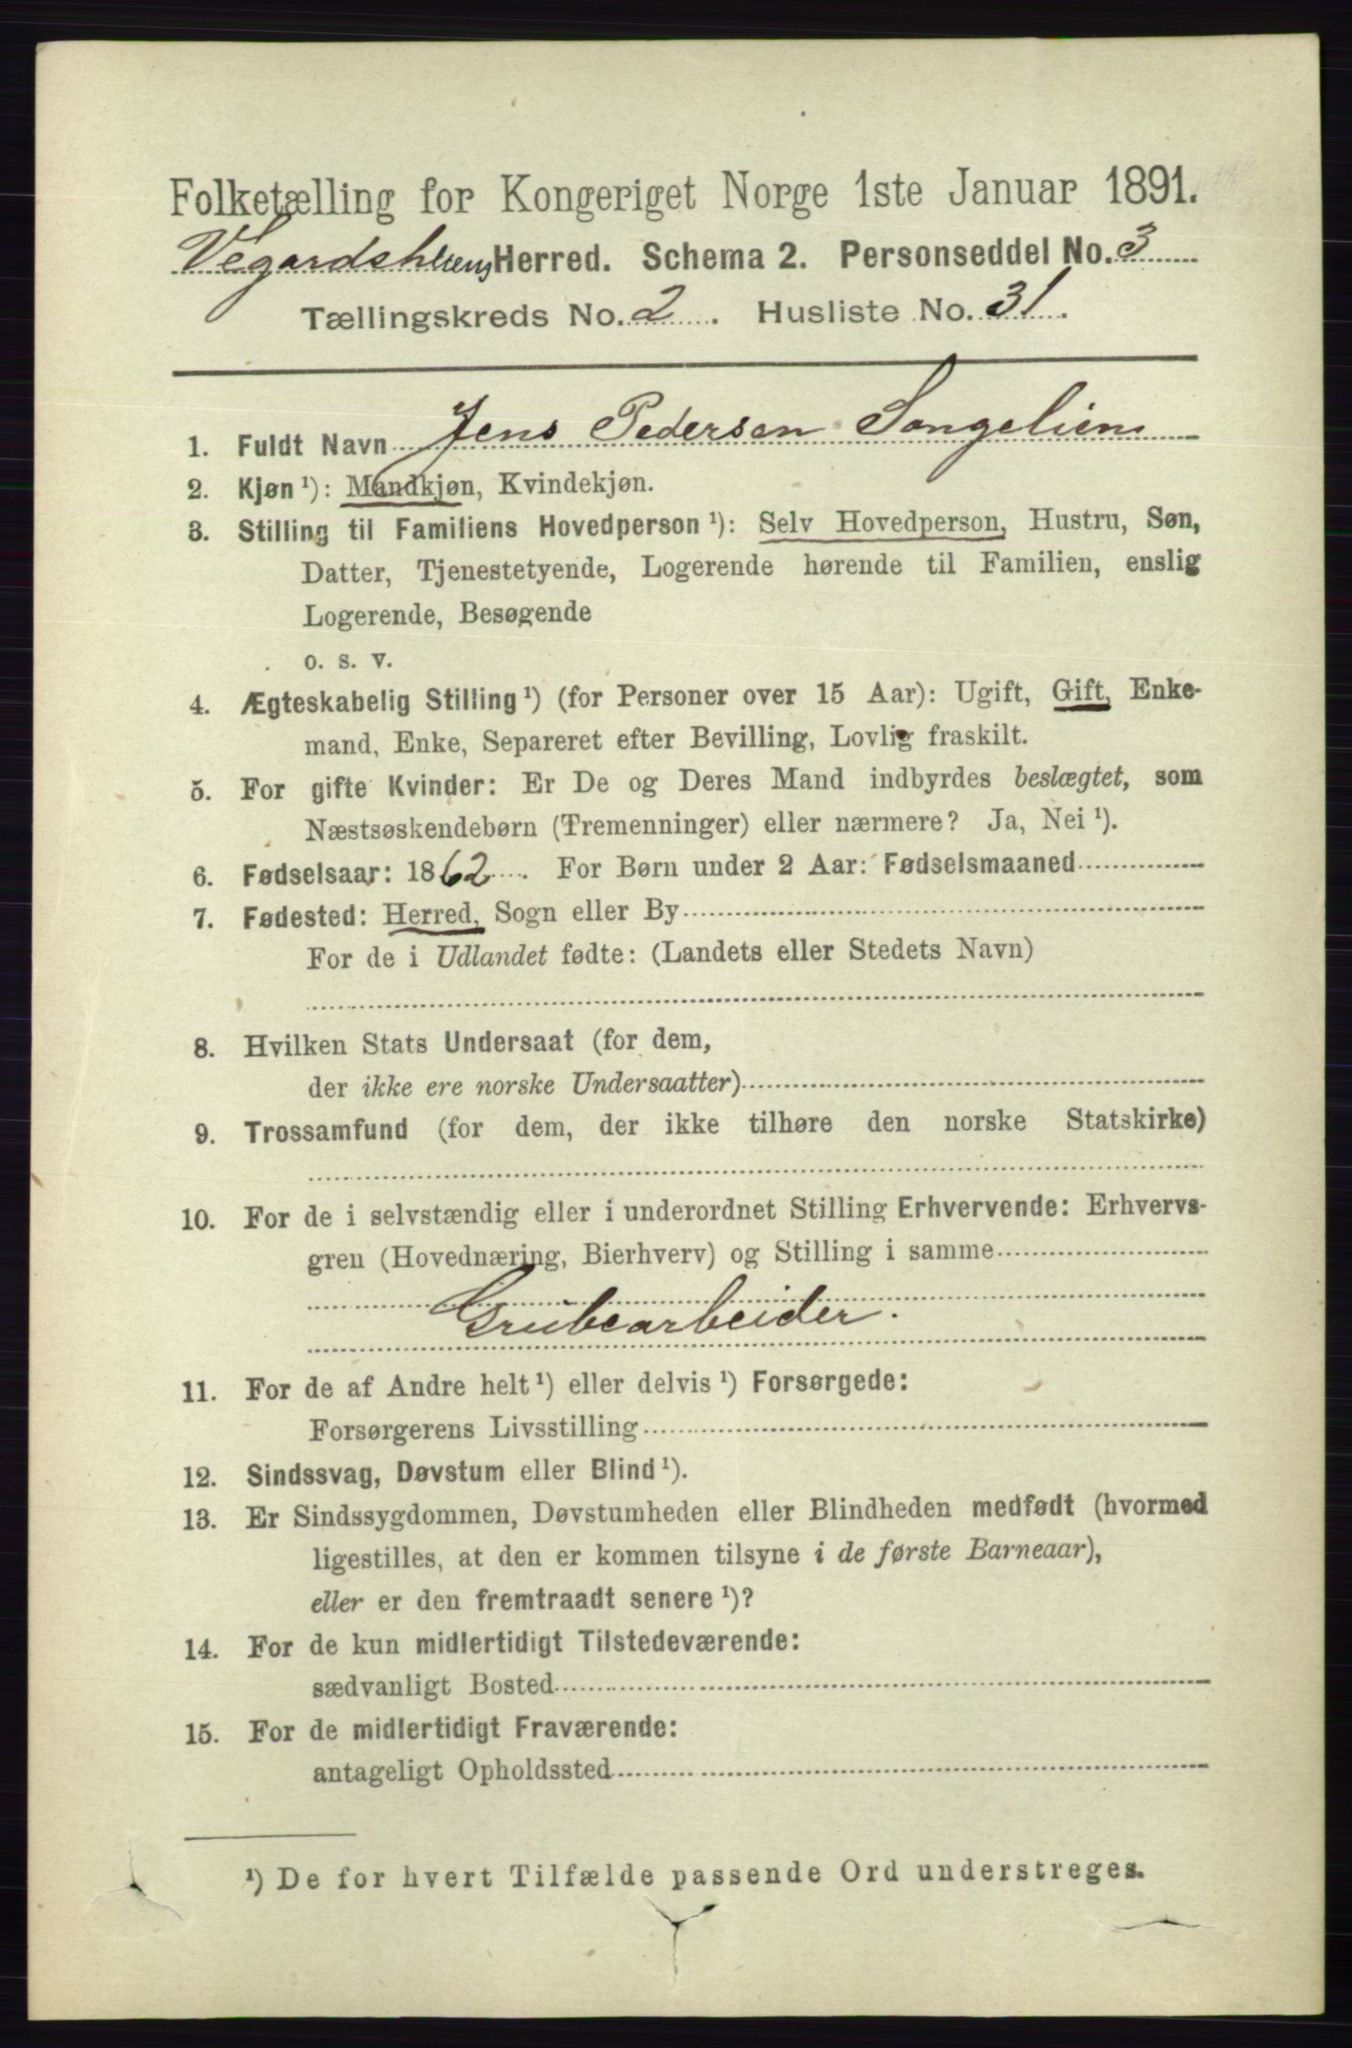 Folketælling for Kongeriget Norge 1ste Januar 1891.
Vegardsheiens Herred. Schema 2. Personseddel No. 3
Tællingskreds No. 2. Husliste No. 31.
1. Fuldt Navn Jens Pedersen Songelien
2. Kjøn ¹): Mandkjøn, Kvindekjøn.
3. Stilling til Familiens Hovedperson ¹): Selv Hovedperson, Hustru, Søn,
Datter, Tjenestetyende, Logerende hørende til Familien, enslig
Logerende, Besøgende
o. s. v.
4. Ægteskabelig Stilling ¹) (for Personer over 15 Aar): Ugift, Gift, Enke-
mand, Enke, Separeret efter Bevilling, Lovlig fraskilt.
5. For gifte Kvinder: Er De og Deres Mand indbyrdes beslægtet, som
Næstsøskendebørn (Tremenninger) eller nærmere? Ja, Nei ¹).
6. Fødselsaar: 1862. For Børn under 2 Aar: Fødselsmaaned
7. Fødested: Herred, Sogn eller By
For de i Udlandet fødte: (Landets eller Stedets Navn)
8. Hvilken Stats Undersaat (for dem,
der ikke ere norske Undersaatter)
9. Trossamfund (for dem, der ikke tilhøre den norske Statskirke)
10. For de i selvstændig eller i underordnet Stilling Erhvervende: Erhvervs-
gren (Hovednæring, Bierhverv) og Stilling i samme
Grubearbeider.
11. For de af Andre helt ¹) eller delvis ¹) Forsørgede:
Forsørgerens Livsstilling
12. Sindssvag, Døvstum eller Blind ¹).
13. Er Sindssygdommen, Døvstumheden eller Blindheden medfødt (hvormed
ligestilles, at den er kommen tilsyne i de første Barneaar),
eller er den fremtraadt senere ¹)?
14. For de kun midlertidigt Tilstedeværende:
sædvanligt Bosted
15. For de midlertidigt Fraværende:
antageligt Opholdssted
¹) De for hvert Tilfælde passende Ord understreges.